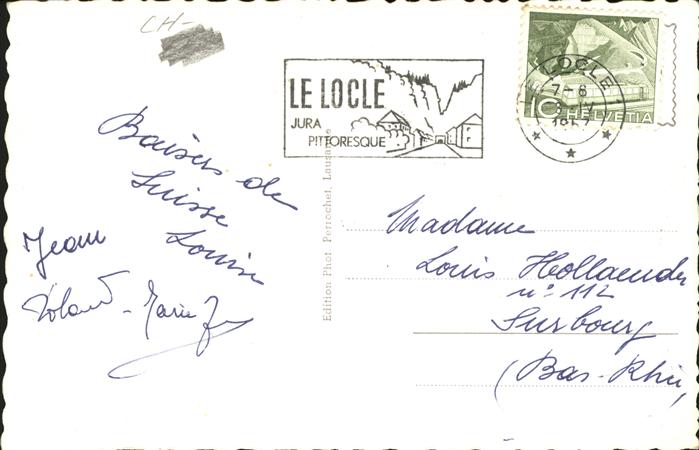 CH-
LE LOCLE
JURA
PITTORESQUE
LOCLE
7-8
IV
10 HELVETIA
Baisers de
Suisse
Louise
Jean
Yoland - Marie
Edition Phot. Perrochet, Lausanne
Madame
Louis Hollaender
n° 112
Surbourg
(Bas-Rhin)